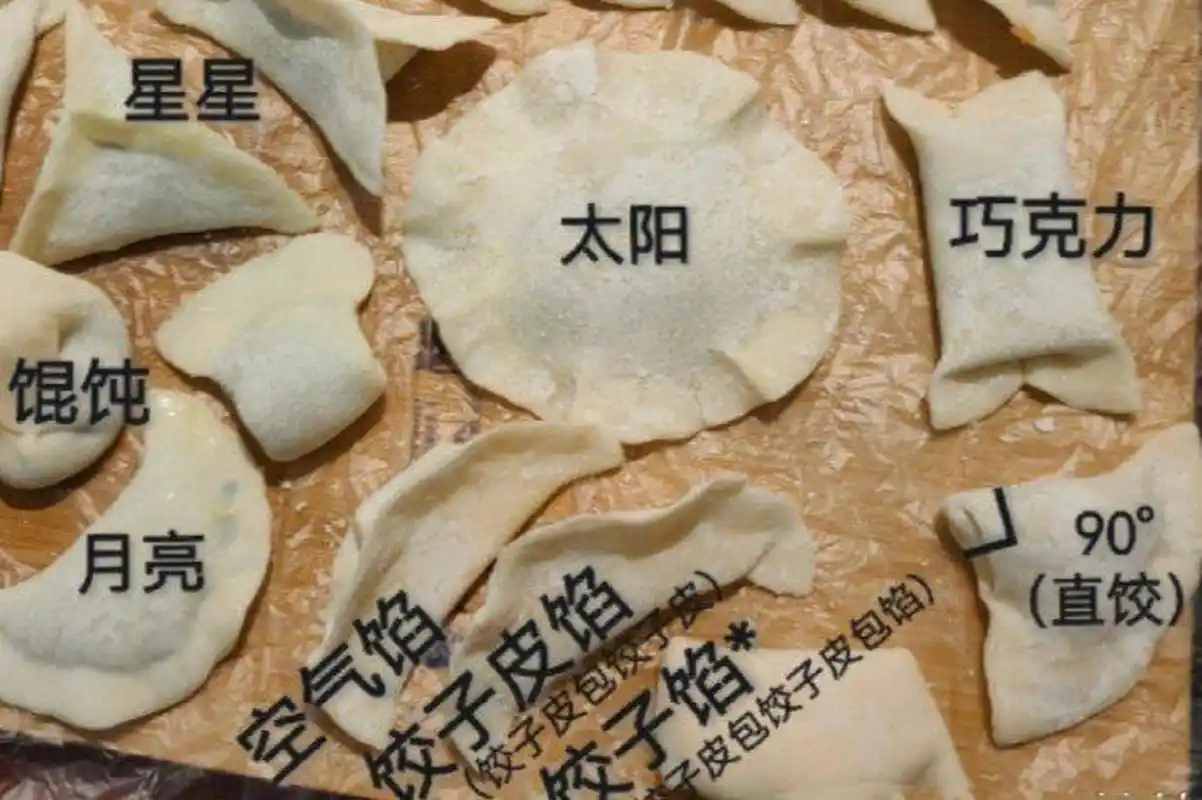 星星
太阳
巧克力
馄饨
月亮
90°
(直饺)
空气馅
饺子皮馅
(饺子皮包饺子皮)
饺子馅*
饺子皮包饺子皮包馅)